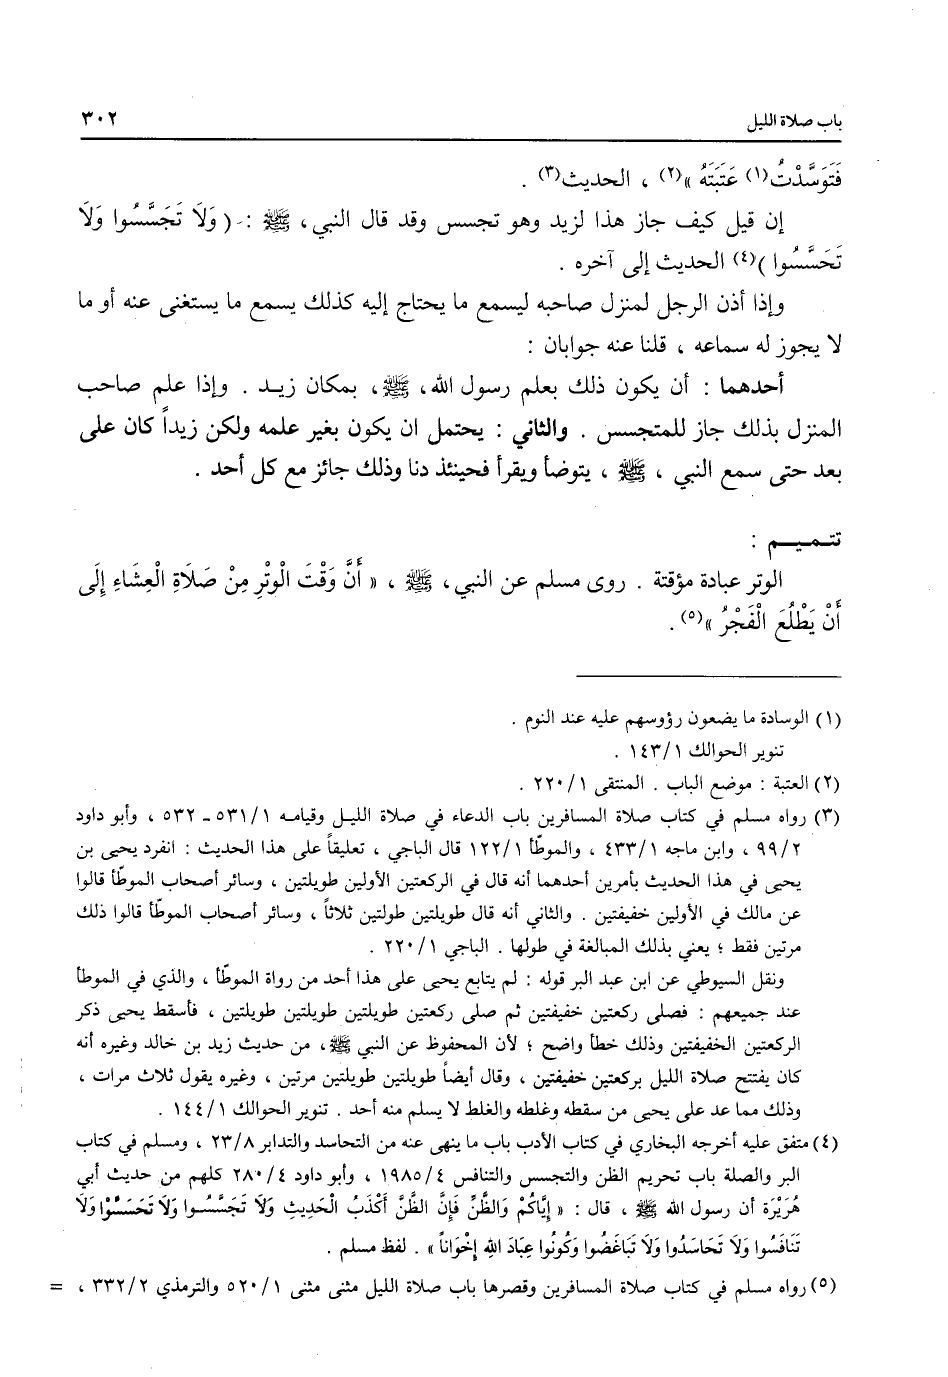 باب صلاة الليل ٣٠٢
فَتَوَسَّدْتُ(١) عَتَبَتَهُ »(٢) ، الحديث(٣) .
إن قيل كيف جاز هذا لزيد وهو تجسس وقد قال النبي، ﷺ :- ( وَلَا تَجَسَّسُوا وَلَا
تَحَسَّسُوا )(٤) الحديث إلى آخره .
وإذا أذن الرجل لمنزل صاحبه ليسمع ما يحتاج إليه كذلك يسمع ما يستغنى عنه أو ما
لا يجوز له سماعه ، قلنا عنه جوابان :
أحدهما : أن يكون ذلك بعلم رسول الله، ﷺ، بمكان زيد . وإذا علم صاحب
المنزل بذلك جاز للمتجسس . والثاني : يحتمل ان يكون بغير علمه ولكن زيداً كان على
بعد حتى سمع النبي ، ﷺ ، يتوضأ ويقرأ فحينئذ دنا وذلك جائز مع كل أحد .
تتميم :
الوتر عبادة مؤقتة . روى مسلم عن النبي، ﷺ ، « أَنَّ وَقْتَ الْوَتْرِ مِنْ صَلَاةِ الْعِشَاءِ إِلَى
أَنْ يَطْلُعَ الْفَجْرُ »(٥) .
(١) الوسادة ما يضعون رؤوسهم عليه عند النوم .
تنوير الحوالك ١٤٣/١ .
(٢) العتبة : موضع الباب . المنتقى ٢٢٠/١ .
(٣) رواه مسلم في كتاب صلاة المسافرين باب الدعاء في صلاة الليل وقيامه ٥٣١/١ - ٥٣٢ ، وأبو داود
٩٩/٢ ، وابن ماجه ٤٣٣/١ ، والموطّأ ١٢٢/١ قال الباجي ، تعليقاً على هذا الحديث : انفرد يحيى بن
يحيى في هذا الحديث بأمرين أحدهما أنه قال في الركعتين الأولين طويلتين ، وسائر أصحاب الموطّأ قالوا
عن مالك في الأولين خفيفتين . والثاني أنه قال طويلتين طولتين ثلاثاً ، وسائر أصحاب الموطّأ قالوا ذلك
مرتين فقط ؛ يعني بذلك المبالغة في طولها . الباجي ٢٢٠/١ .
ونقل السيوطي عن ابن عبد البر قوله : لم يتابع يحيى على هذا أحد من رواة الموطّأ ، والذي في الموطأ
عند جميعهم : فصلى ركعتين خفيفتين ثم صلى ركعتين طويلتين طويلتين طويلتين ، فأسقط يحيى ذكر
الركعتين الخفيفتين وذلك خطأ واضح ؛ لأن المحفوظ عن النبي ﷺ، من حديث زيد بن خالد وغيره أنه
كان يفتتح صلاة الليل بركعتين خفيفتين ، وقال أيضاً طويلتين طويلتين مرتين ، وغيره يقول ثلاث مرات ،
وذلك مما عد على يحيى من سقطه وغلطه والغلط لا يسلم منه أحد . تنوير الحوالك ١٤٤/١ .
(٤) متفق عليه أخرجه البخاري في كتاب الأدب باب ما ينهى عنه من التحاسد والتدابر ٢٣/٨ ، ومسلم في كتاب
البر والصلة باب تحريم الظن والتجسس والتنافس ١٩٨٥/٤ ، وأبو داود ٢٨٠/٤ كلهم من حديث أبي
هُرَيْرَة أن رسول الله ﷺ ، قال : « إِيَّاكُمْ وَالظَّنِّ فَإِنَّ الظَّنَّ أَكْذَبُ الْحَدِيثِ وَلَا تَجَسَّسُوا وَلَا تَحَسَّسُوا وَلَا
تَنَافَسُوا وَلَا تَحَاسَدُوا وَلَا تَبَاغَضُوا وَكُونُوا عِبَادَ اللهِ إِخْوَاناً » . لفظ مسلم .
(٥) رواه مسلم في كتاب صلاة المسافرين وقصرها باب صلاة الليل مثنى مثنى ٥٢٠/١ والترمذي ٣٣٢/٢ ، =